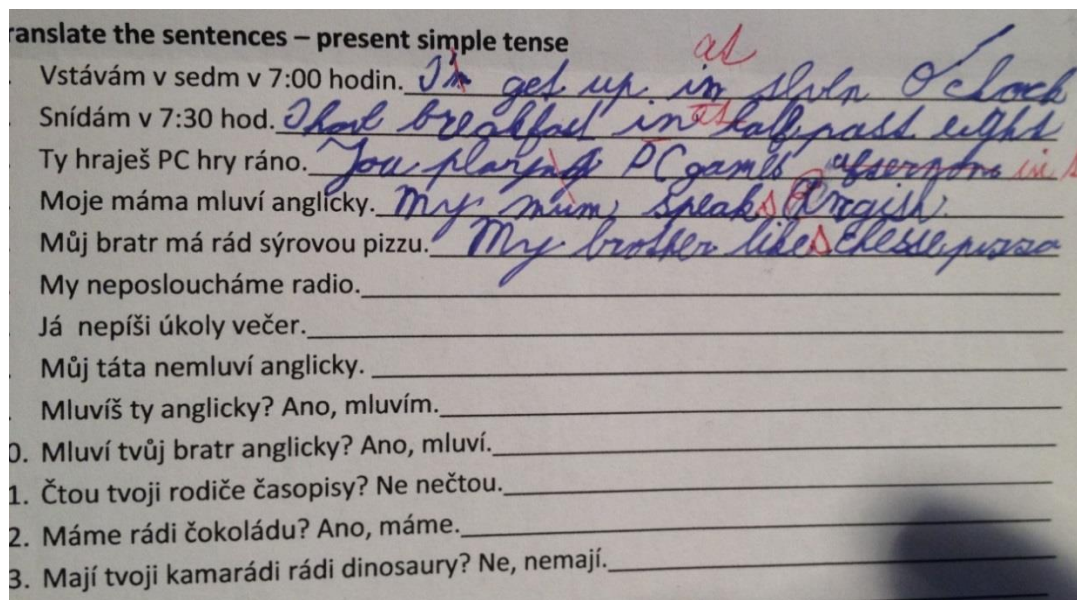 ranslate the sentences – present simple tense
at
. Vstávám v sedm v 7:00 hodin. I'm get up in seven O'clock
. Snídám v 7:30 hod. I have breakfast in at half past eight
. Ty hraješ PC hry ráno. You playing PC games afternoons in
. Moje máma mluví anglicky. My mum, speaks English.
. Můj bratr má rád sýrovou pizzu. My brother likes cheese pizza
. My neposloucháme radio.
. Já nepíši úkoly večer.
. Můj táta nemluví anglicky.
. Mluvíš ty anglicky? Ano, mluvím.
0. Mluví tvůj bratr anglicky? Ano, mluví.
1. Čtou tvoji rodiče časopisy? Ne nečtou.
2. Máme rádi čokoládu? Ano, máme.
3. Mají tvoji kamarádi rádi dinosaury? Ne, nemají.